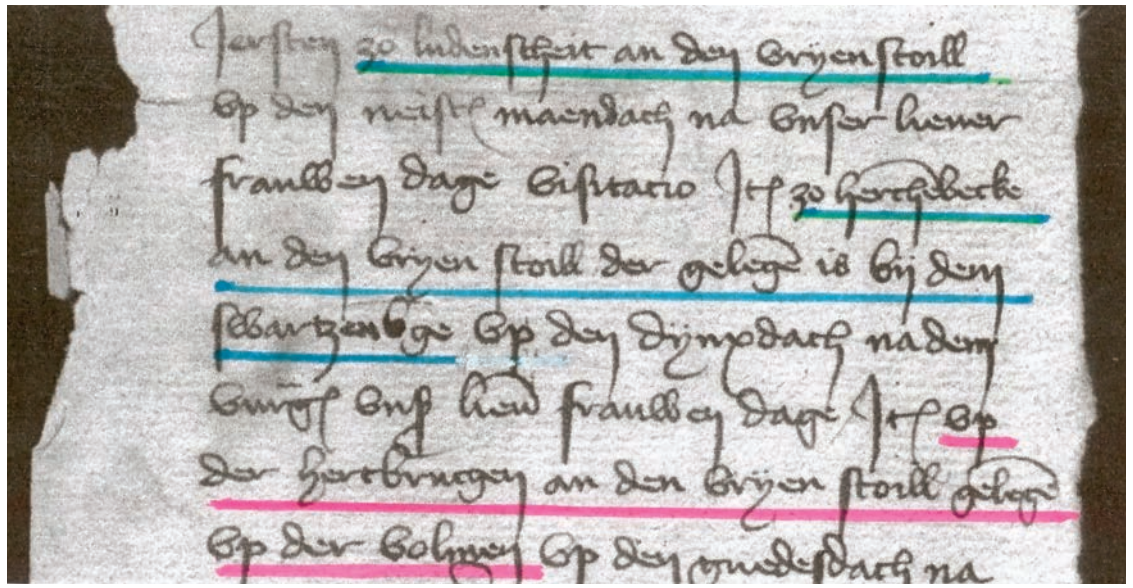 Jersten zo ludenscheit an den vryen stoill
vp den neist maendach na vnser lieuer
frauwen dage visitacio Jt zo herchēbecke
an den vryen stoill der gelegē is bij dem
swartzenbge vp den dynxdach na dem
vnß lieū frauwen dage Jt vp
der hertbruggen an den vryen stoill gelegē
vp der volmen vp den guedesdach na